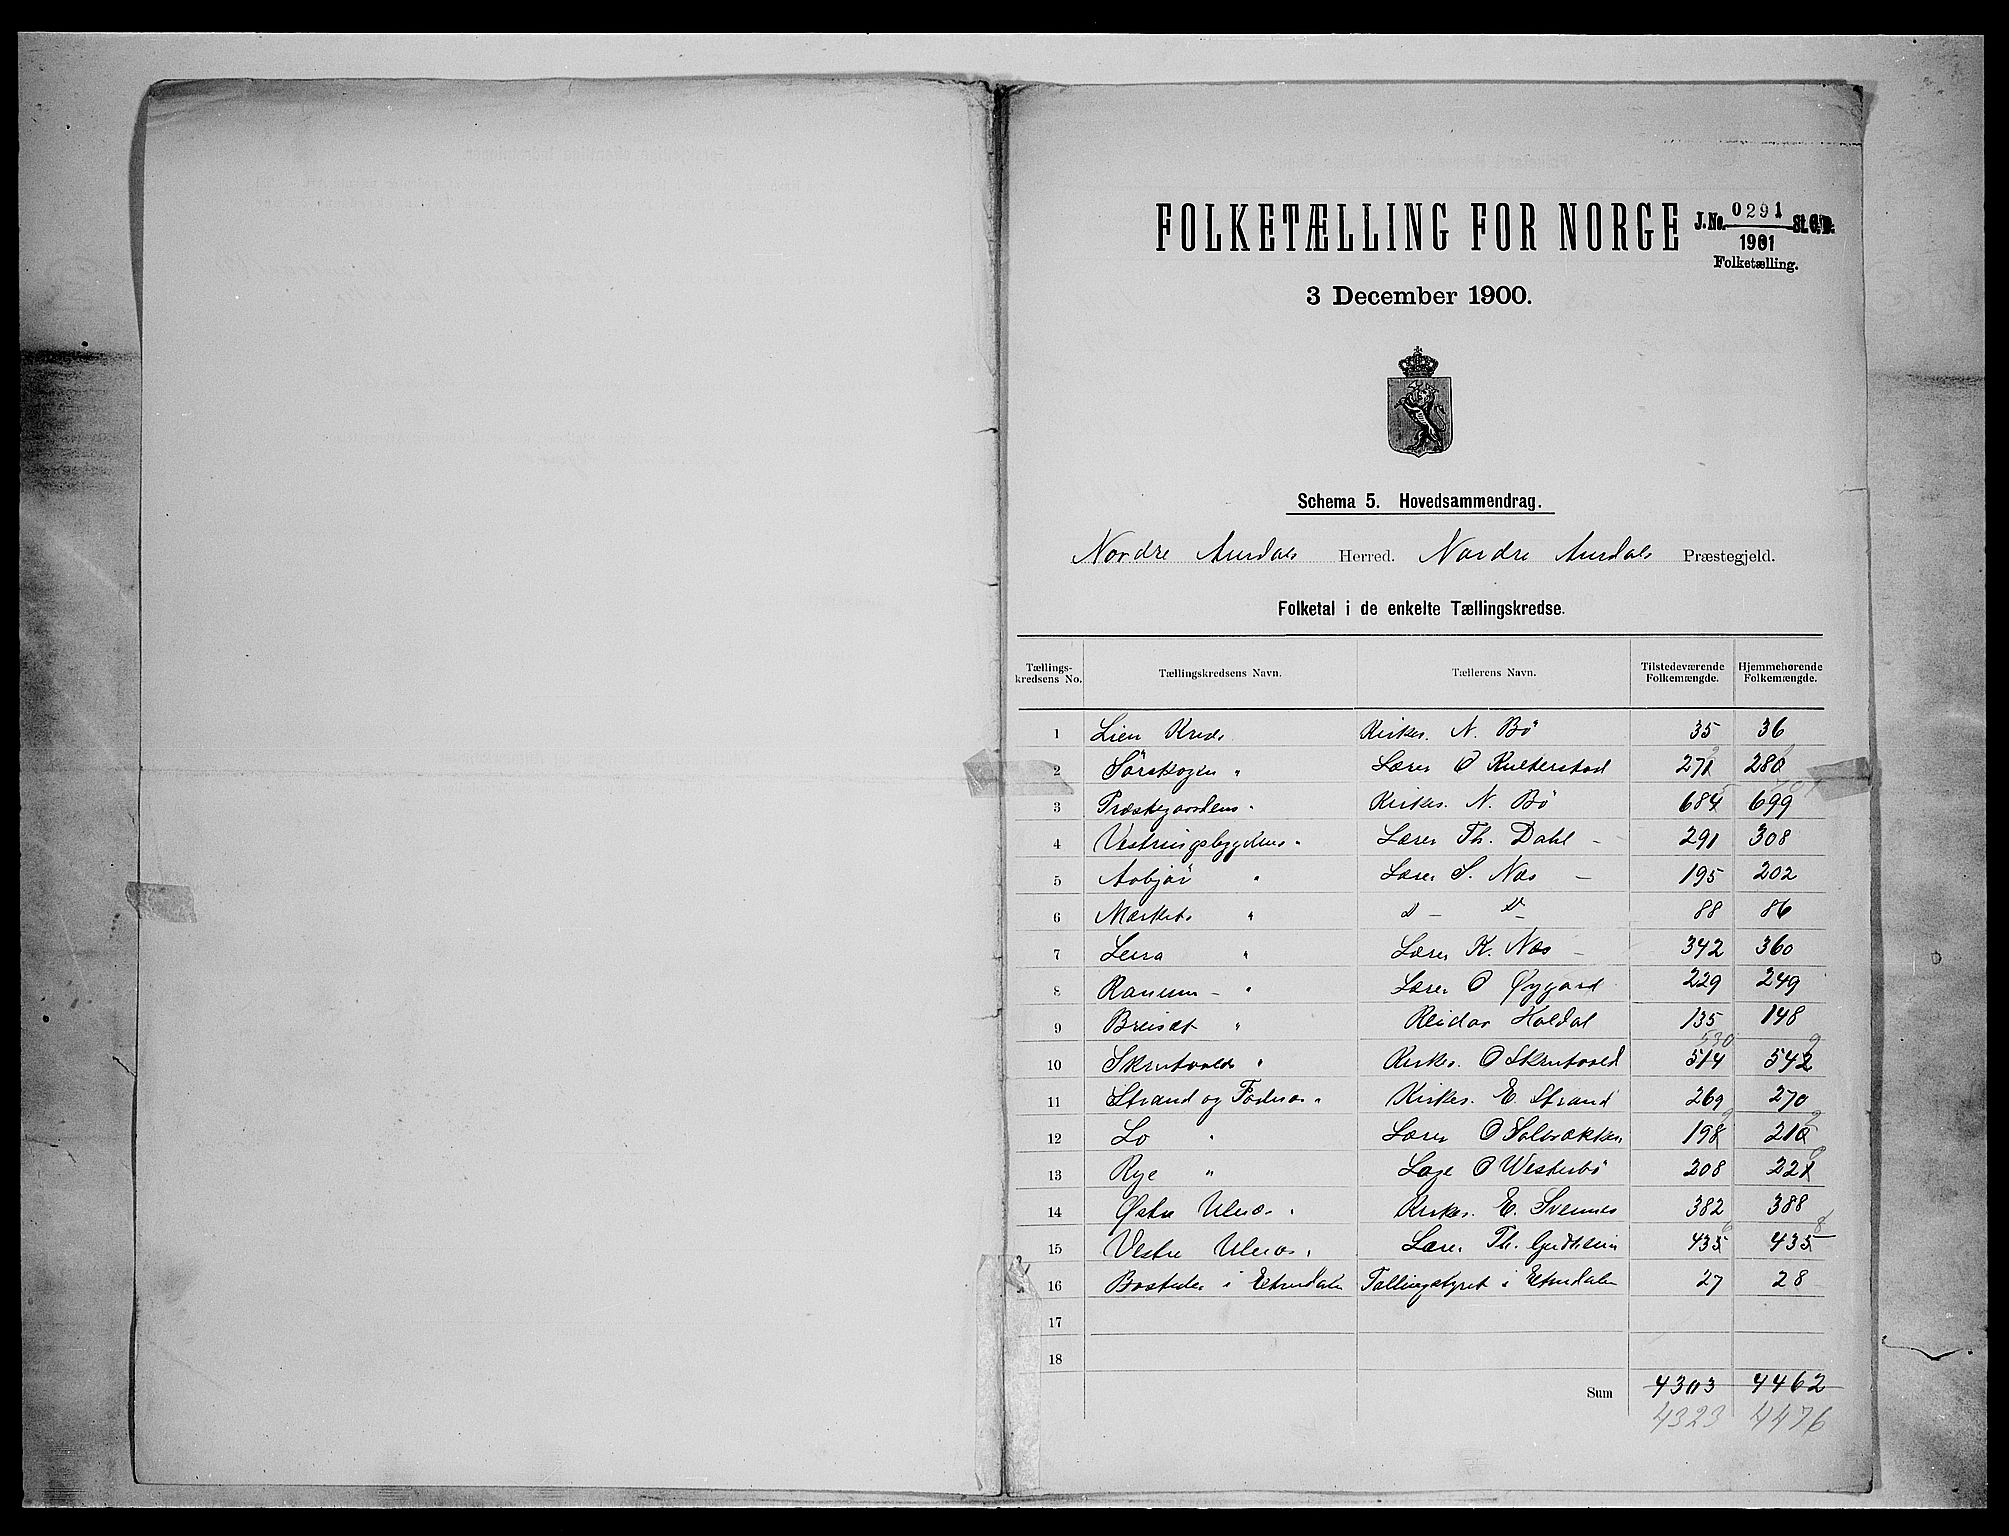 FOLKETÆLLING FOR NORGE
J. No. 0291 St. C. B.
1901
Folketælling.
3 December 1900.
Schema 5. Hovedsammendrag.
Nordre Aurdals Herred. Nordre Aurdals Præstegjeld.
Folketal i de enkelte Tællingskredse.
Tællings-kredsens No. Tællingskredsens Navn. Tællerens Navn. Tilstedeværende Folkemængde. Hjemmehørende Folkemængde.
1 Lien Kreds Kirkes. N. Bö 35 36
2 Sörskogen " Lærer O 271 280
3 Præstegaardens " Kirkes. N. Bö 684 699
4 Vestringsbygdens " Lærer Th. Dahl - 291 308
5 Aabjör " Lærer S. Næs - 195 202
6 Merkets " d - d - 88 86
7 Leira " Lærer K. Næs - 342 360
8 Ranum - " Lærer O Øygard 229 249
9 Breiset " Reidar Holdal 135 148
530 9
10 Skrutvolds " Kirkes. O Skrutvold 514 542
11 Strand og Fodnæs " Kirkes. E. Strand 269 270
12 Lo " Lærer O 198 210
13 Rye " Lage O Westerbö 208 221
14 Østre Ulnæs " Kirkes. E. Svennes 382 388
15 Vestre Ulnæs " Lærer Th. Gudheim 435 435
16 Bosteder i Etnedalen Tællingsstyret i Etnedalen 27 28
17
18
Sum 4303 4462
4323 4476